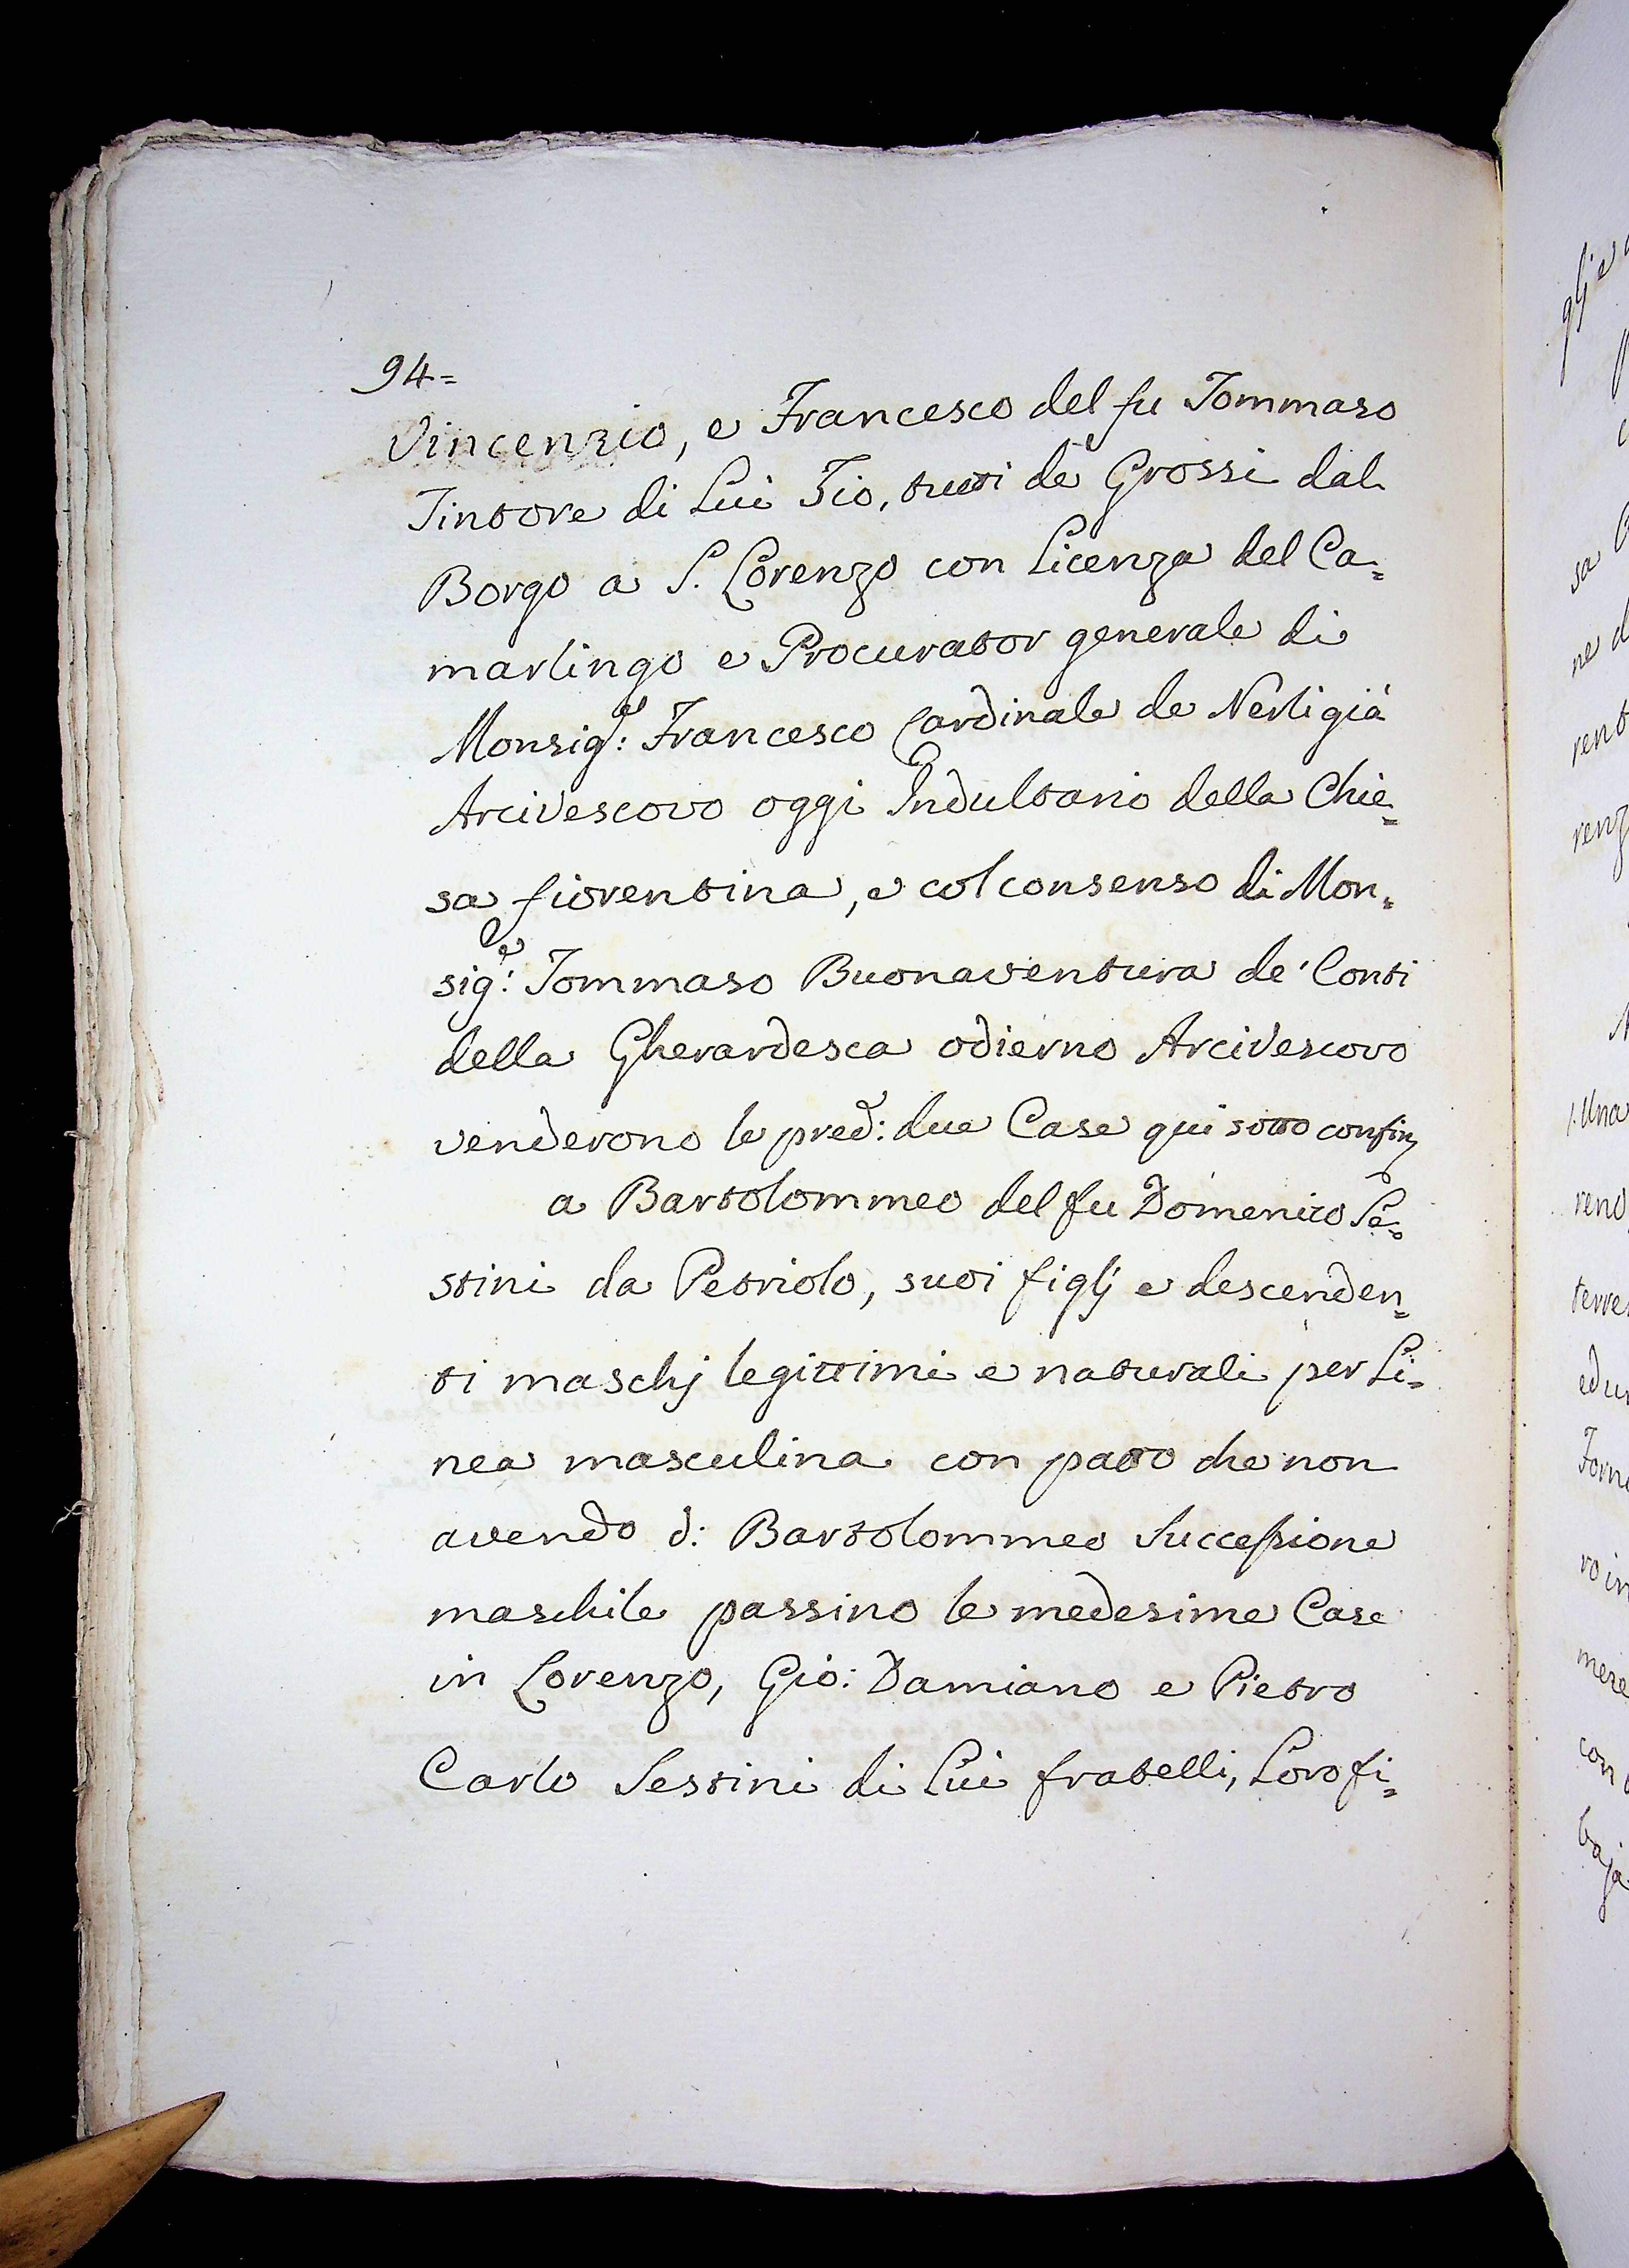 94=
Vincenzio, e Francesco del fu Tommaso
Tintore di Lui Zio, tutti de' Grossi dal
Borgo a S. Lorenzo con Licenza del Ca=
marlingo e Procurator generale di
Monsig:re Francesco Cardinale de Nerli già
Arcivescovo oggi Indultario della Chie=
sa fiorentina, e col consenso di Mon=
sig:re Tommaso Buonaventura de' Conti
della Gherardesca odierno Arcivescovo
venderono le pred:e due Case qui sotto confin
a Bartolommeo del fu Domenico Se=
stini da Petriolo, suoi figlj e descenden=
ti maschj legittimi e naturali per Li=
nea masculina con patto che non
avendo d: Bartolommeo Successione
maschile passino le medesime Case
in Lorenzo, Gio: Damiano e Pietro
Carlo Sestini di Lui fratelli, Loro fi=